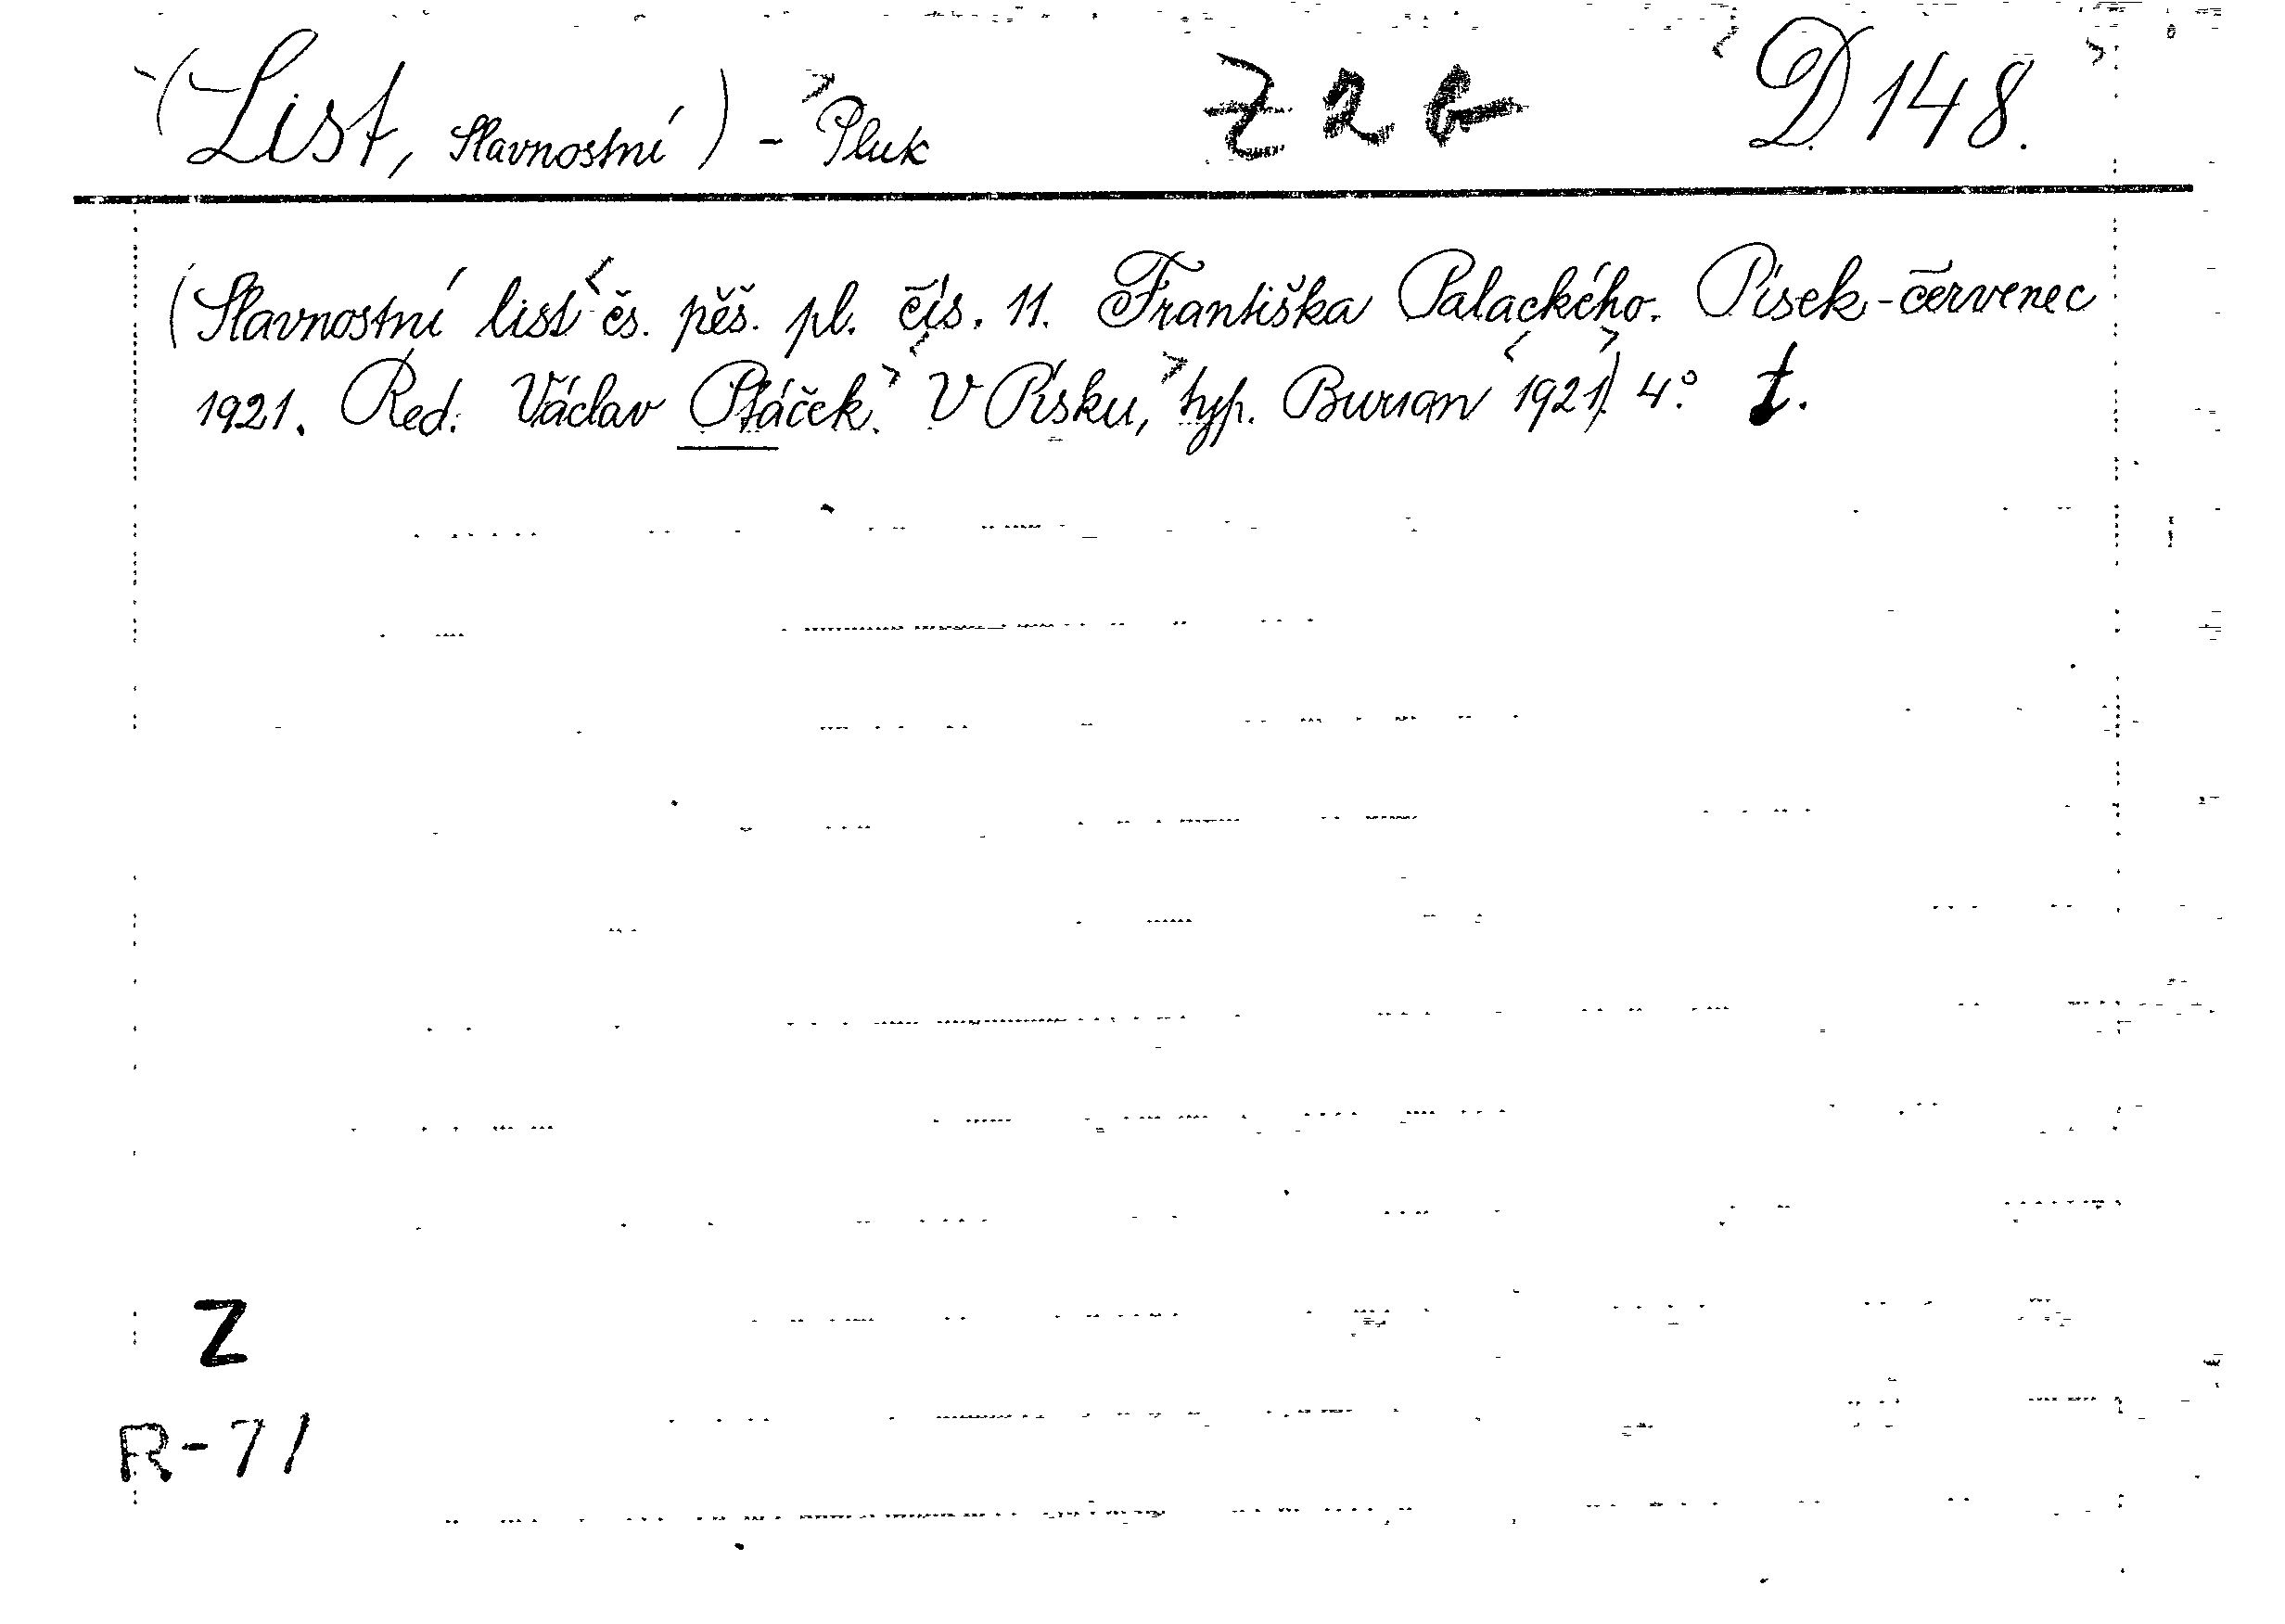 (List, Slavnostní) - Pluk Z 2 b D 148.
(Slavnostní list čs. pěš. pl. čís. 11. Františka Palackého. Písek-červenec
1921. Red. Václav Ptáček. V Písku, typ. Burian 1921). 4° I.
Z
R-71